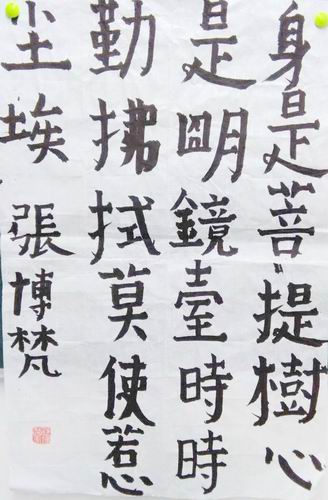 身是菩提樹心
是明鏡臺時時
勤拂拭莫使惹
尘埃 張博梵